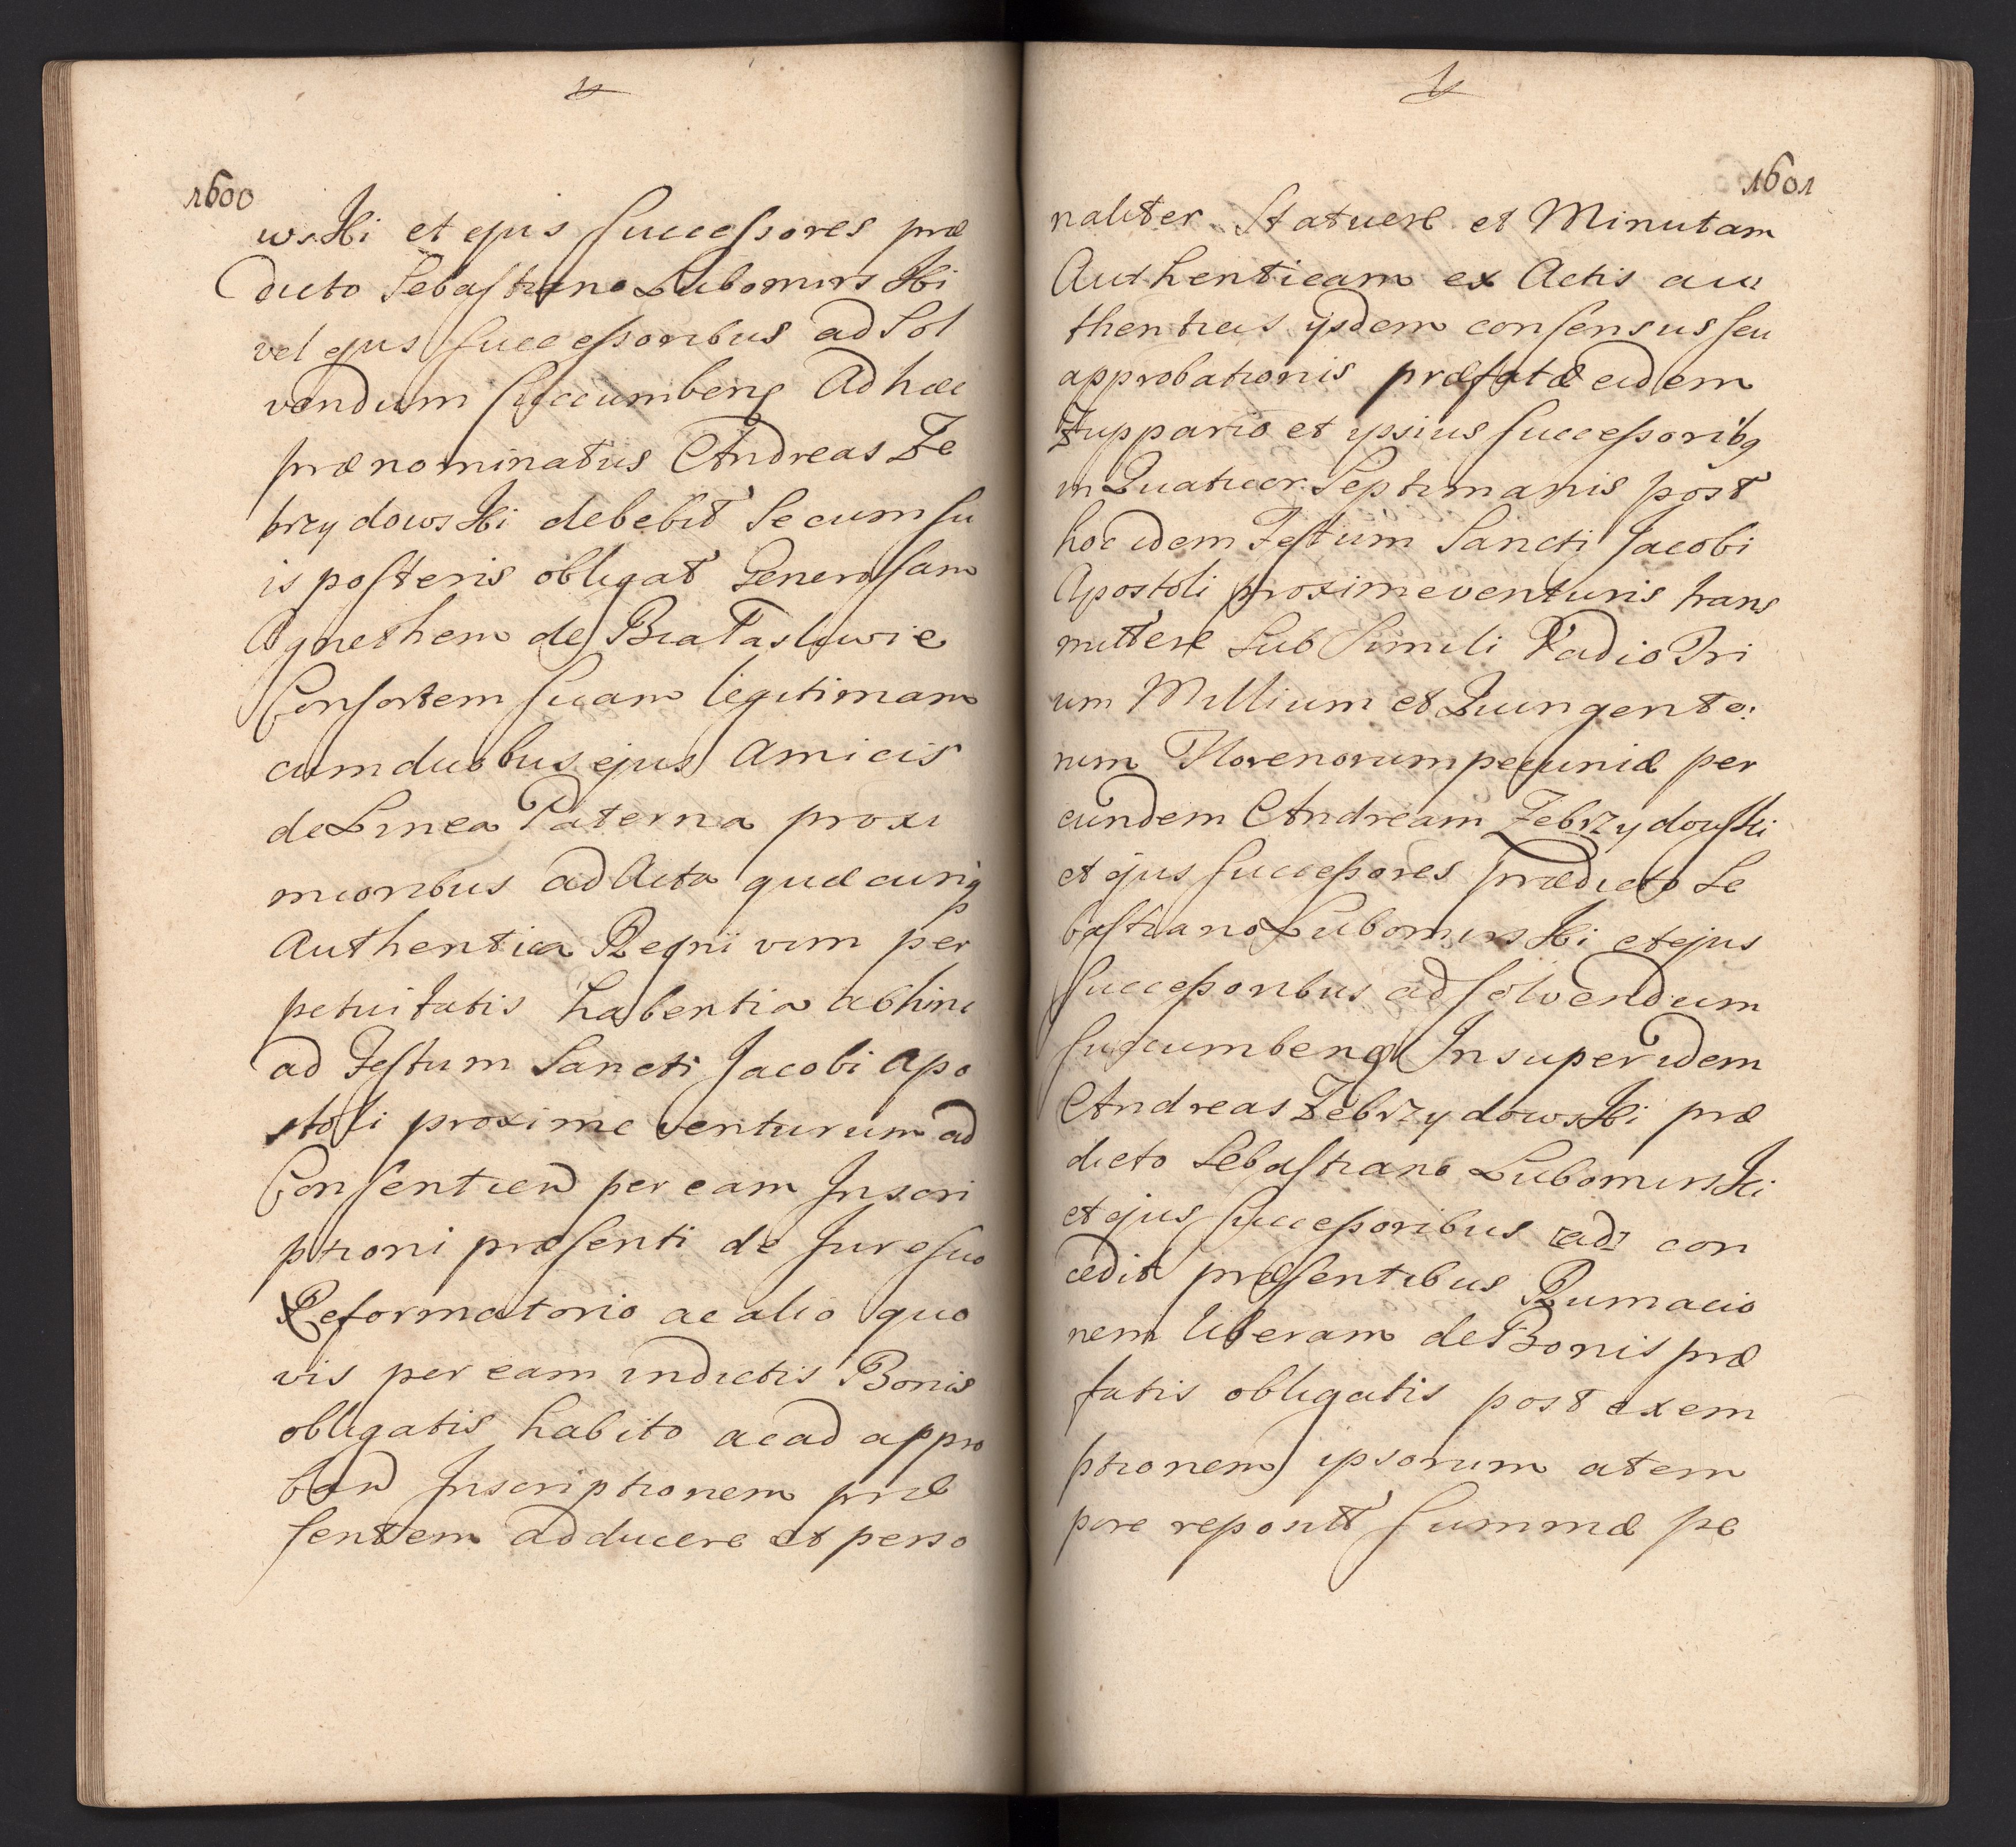 1600
wski et ejus Successores præ
dicto Sebastiano Lubomirski
vel ejus Successoribus ad Sol
vendum succumben Ad hæc
prænominatus Andreas Ze
brzydowski debebit Se cum su
is posteris obligat Generosam
Agnethem de
Consortem suam legitimam
cum duobus ejus Amicis
de Linea Paterna proxi
mioribus ad Acta quæcunq
Authentica Regni vim per
petuitatis habentia abhinc
ad Festum Sancti Jacobi Apo
stoli proxime venturum ad
Consentiend per eam Inscri
ptioni præsenti de Jure suo
Reformatorio ac alio quo
vis per eam in dictis Bonis
obligatis habito ac ad appro
band Inscriptionem præ
sentem adducere et perso
1601
naliter Statuere et Minutam
Authenticam ex Actis au
thenticis ijsdem consensus seu
approbationis præfatæ eidem
Zuppario et ipsius successorib9
in Quatuor Septimanis post
hoc idem Festum Sancti Jacobi
Apostoli proxime venturis trans
mittere Sub Simili Vadio Tri
um Millium et Quingento
rum Florenorum pecuniæ per
eundem Andream Zebrzydowski
et ejus successores prædicto Se
bastiano Lubomirski et ejus
Successoribus ad solvendum
succumben Insuper idem
Andreas Zebrzydowski præ
dicto Sebastiano Lubomirski
et ejus Successoribus [ad] con
cedit præsentibus Rumacio
nem liberam de Bonis præ
fatis obligatis post exem
ptionem ipsorum a tem
pore reposit Summæ pe